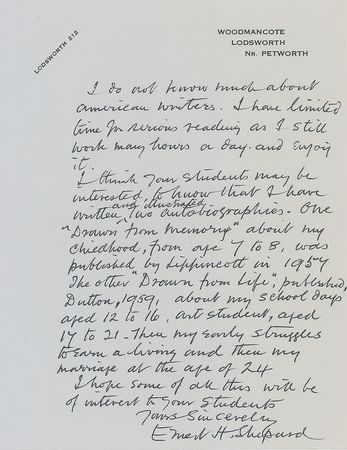 LODSWORTH 212
WOODMANCOTE
LODSWORTH
NR. PETWORTH
I do not know much about
american writers. I have limited
time for serious reading as I still
work many hours a day. and enjoy
it.
I think your students may be
interested to know that I have
and illustrated
written, two autobiographies. One
"Drawn from Memory" about my
childhood, from age 7 to 8, was
published by Lippincott in 1957
The other "Drawn from Life", published,
Dutton, 1959, about my school days
aged 12 to 16. art student, aged
17 to 21 - Then my early struggles
to earn a living and then my
marriage at the age of 24
I hope some of all this will be
of interest to your students
Yours Sincerely
Ernest H. Shepard